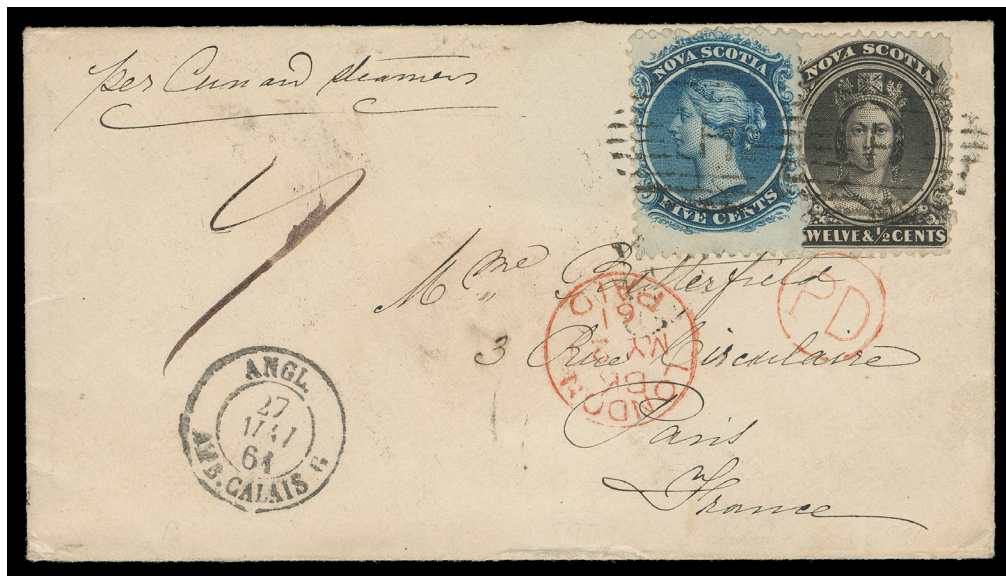 per Cunard steamers
NOVA SCOTIA
FIVE CENTS
NOVA SCOTIA
WELVE & ½ CENTS
7
Mme Butterfield
PD
3 Rue Circulaire
Paris
France
LONDON
DK
MY
61
PAID
ANGL.
27
MAI
61
AMB. CALAIS G